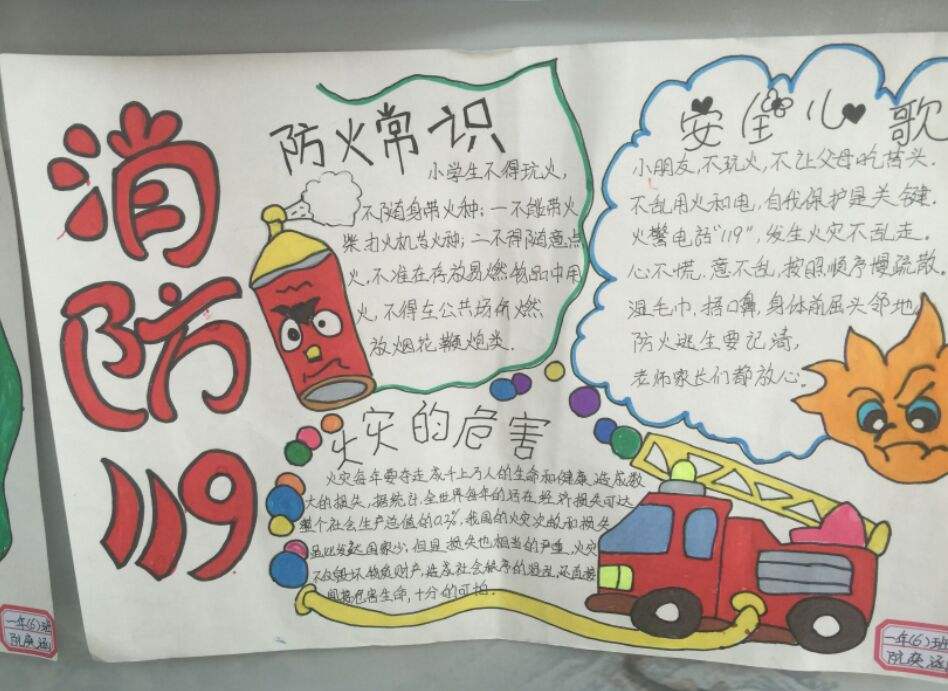 消
防
119
防火常识
小学生不得玩火,
不随身带火种;一不能带火
柴打火机等火种;二不得随意点
火,不准在存放易燃物品中用
火,不得在公共场所燃
放烟花鞭炮类.
安全儿歌
小朋友,不玩火,不让父母吃苦头.
不乱用火和电,自我保护是关键.
火警电话"119",发生火灾不乱走.
心不慌,意不乱,按照顺序慢疏散.
湿毛巾,捂口鼻,身体前屈头邻地,
防火逃生要记清,
老师家长们都放心。
火灾的危害
火灾每年要夺走成千上万人的生命和健康,造成数
大的损失,据统计,全世界每年的火灾经济损失可达
整个社会生产总值的0.2%,我国的火灾次数和损失
虽比发达国家少,但且损失也相当的严重,火灾
不仅毁坏物质财产,造成社会秩序的混乱,还直接
间接危害生命,十分的可怕.
一年(6)班
一年(6)班